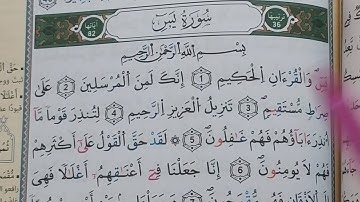 ترتيبها 36 سُورَةُ يسٓ آياتها 82
بِسْمِ اللَّهِ الرَّحْمَٰنِ الرَّحِيمِ
يسٓ ١ وَالْقُرْءَانِ الْحَكِيمِ ١ إِنَّكَ لَمِنَ الْمُرْسَلِينَ ٢ عَلَىٰ
صِرَٰطٍ مُّسْتَقِيمٍ ٣ تَنزِيلَ الْعَزِيزِ الرَّحِيمِ ٤ لِتُنذِرَ قَوْمًا مَّا
أُنذِرَ ءَابَآؤُهُمْ فَهُمْ غَٰفِلُونَ ٥ لَقَدْ حَقَّ الْقَوْلُ عَلَىٰٓ أَكْثَرِهِمْ
فَهُمْ لَا يُؤْمِنُونَ ٦ إِنَّا جَعَلْنَا فِىٓ أَعْنَٰقِهِمْ أَغْلَٰلًا فَهِىَ